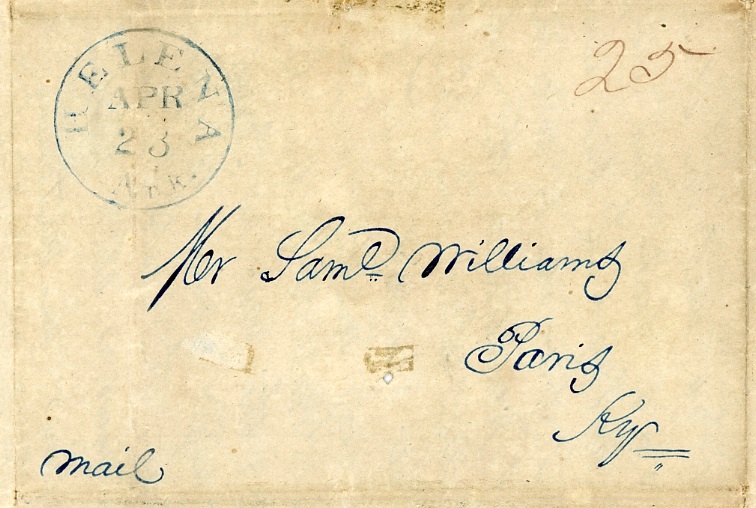 HELENA
APR
23
ARK.
25
Mr Saml Williams
Paris
Ky
mail